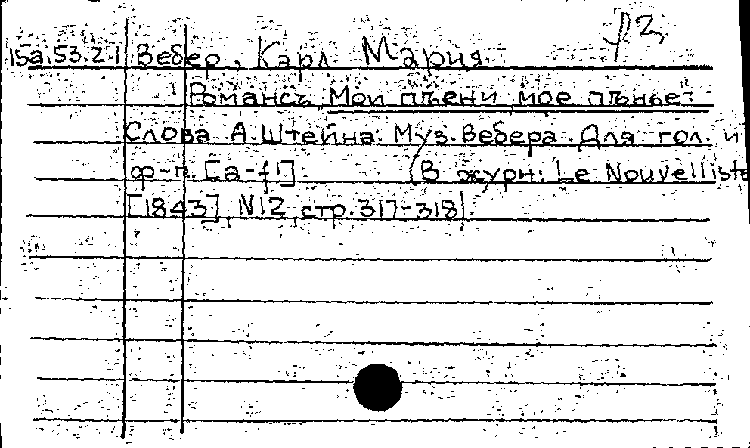 15a.53.2.1 Вебер, Карл Мария
Романсъ, Мои пъени мое пънье.
Слова А.Штейна. Муз. Вебера. Для гол. и
ф-п. [a-f¹] (В журн: Le Nouvelliste
[1843], N12, стр. 317-318).